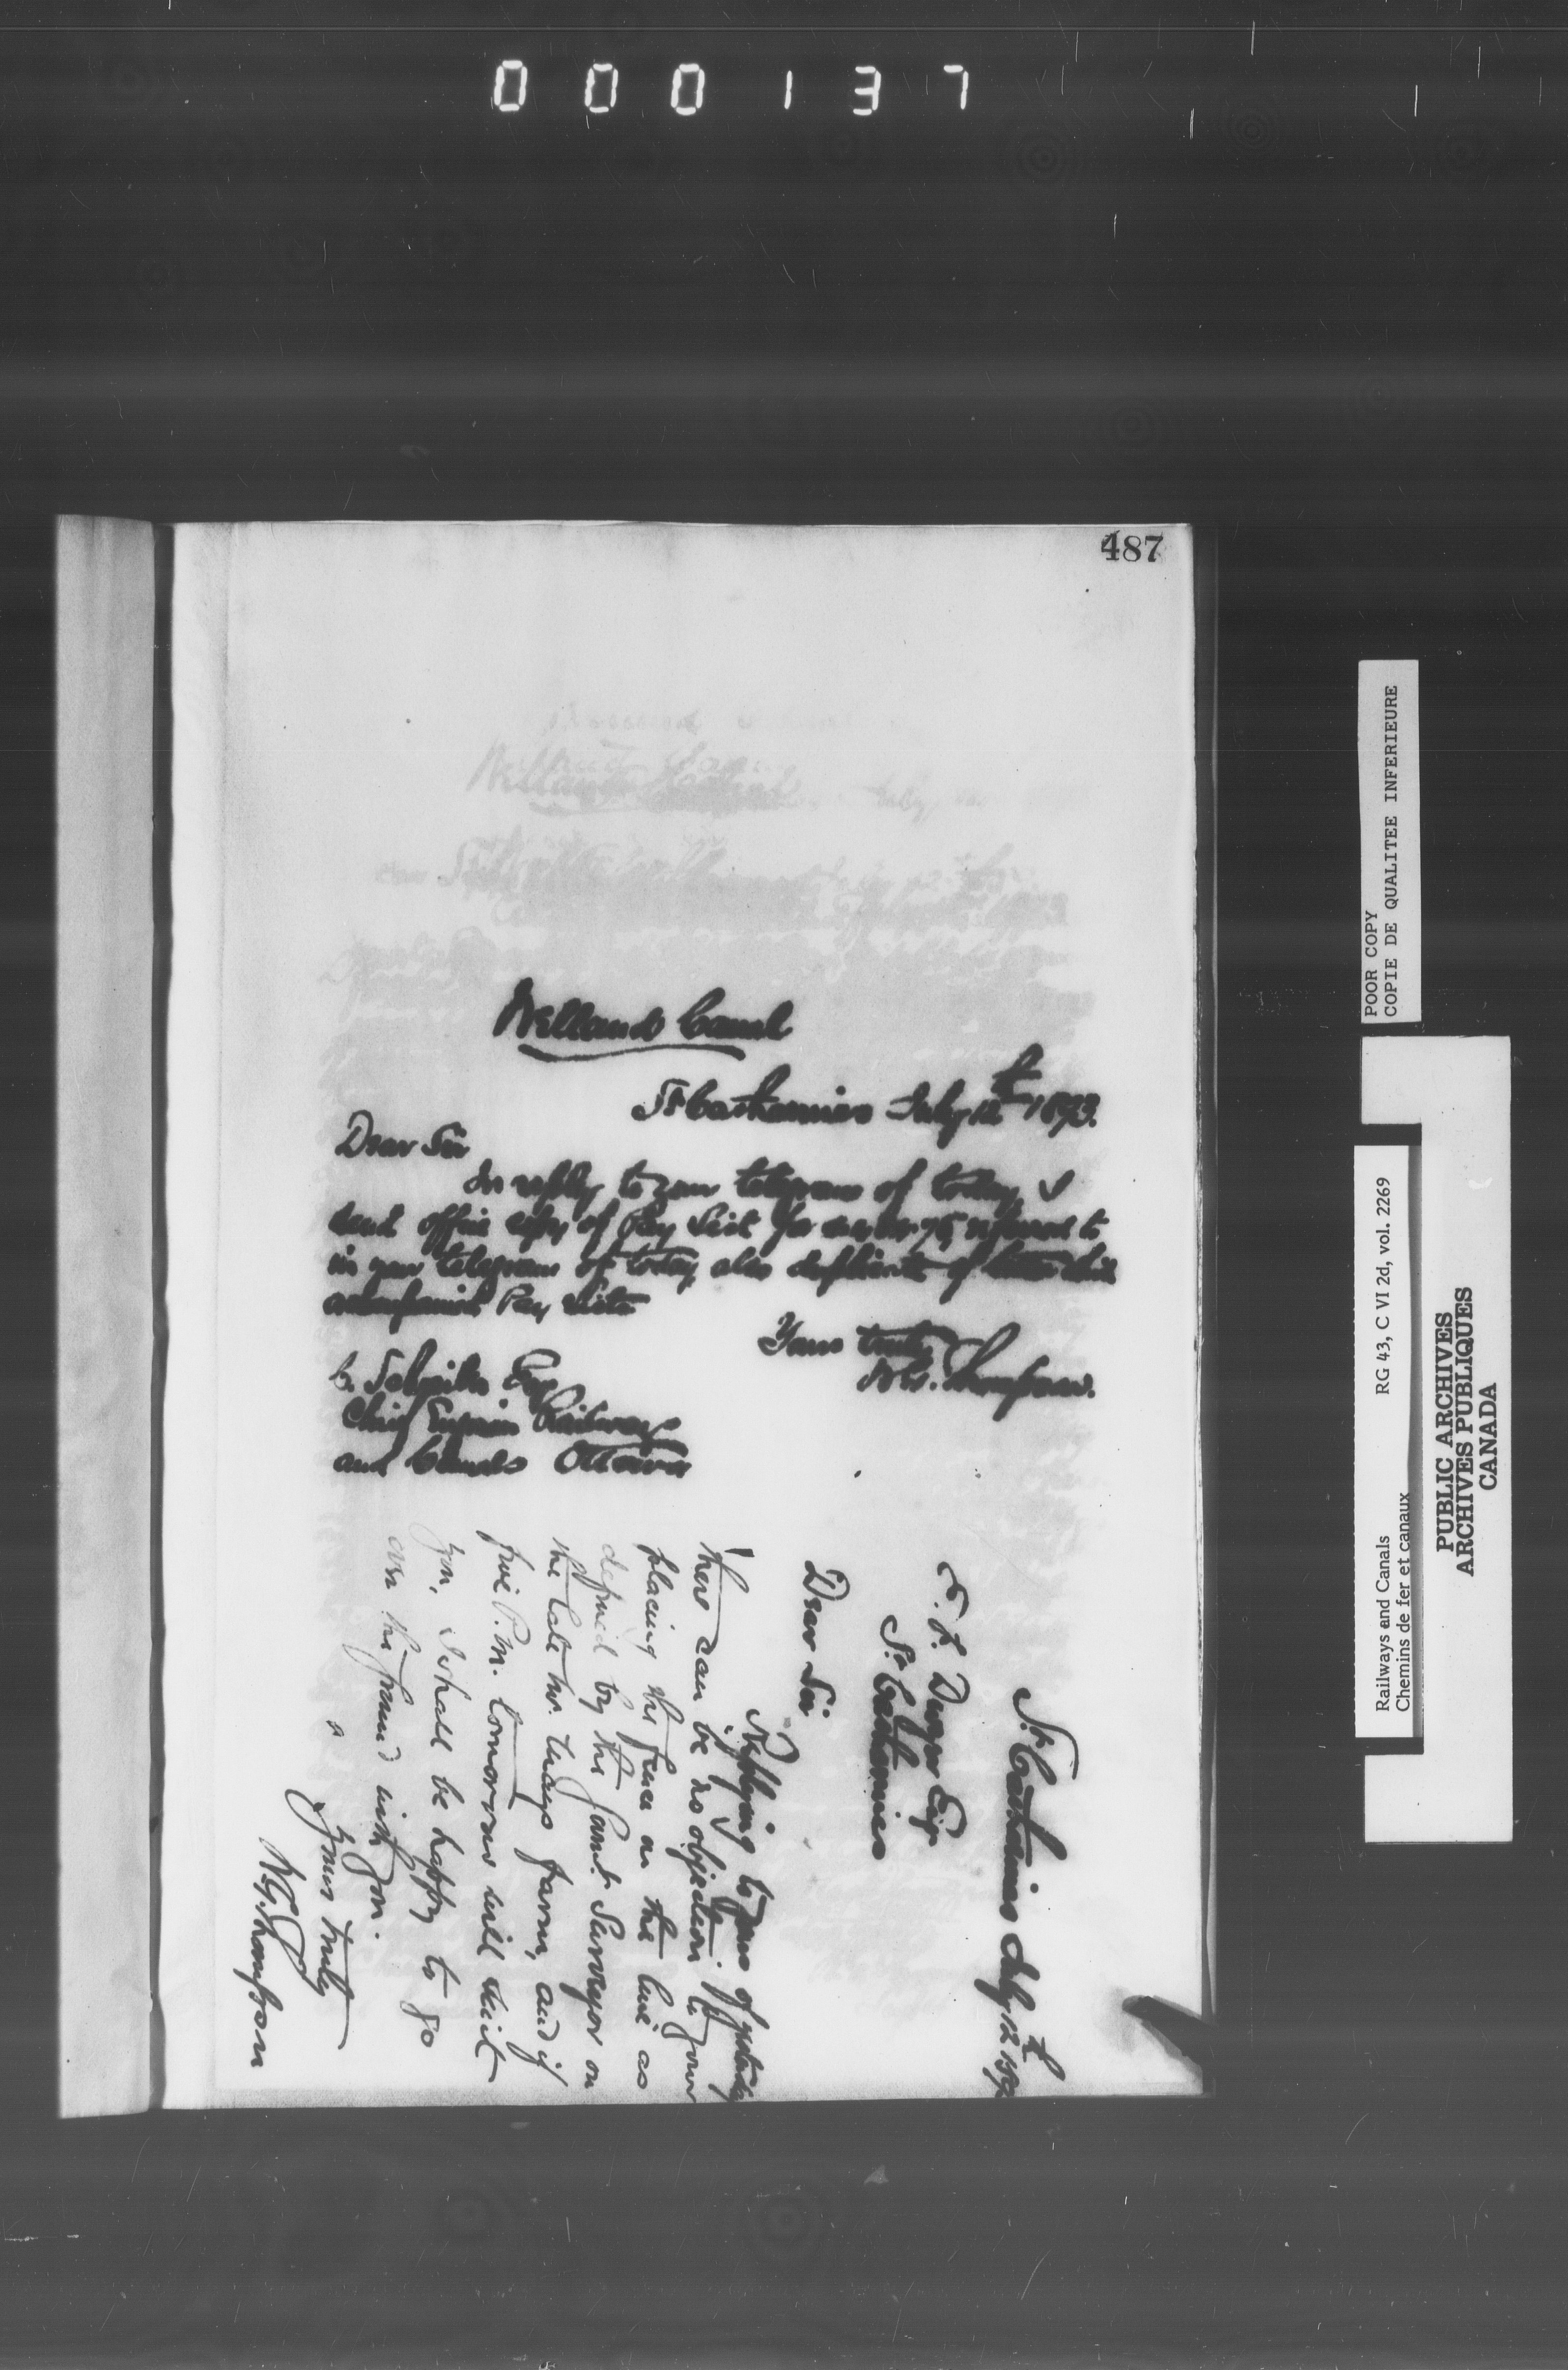 000137
487
Welland Canal
St Catharines July 12th 1893.
Dear Sir
In reply to your telegram of today I
send office copy of Pay List for referred to
in your telegram of today also duplicate of
accompanied Pay Lists
Yours truly
W.G. Thompson.
C. Schreiber Esq
Chief Engineer Railways
and Canals Ottawa
St Catharines July 12th 189
Dwyer Esq
St Catharines
Dear Sir
Replying to yours of yesterday
there can be no objection to your
placing the fence on the line as
defined by the Govmt. Surveyor on
the late farm, and if
five P.M. tomorrow will suit
you, I shall be happy to go
over the ground with you.
Yours truly
W.G. Thompson
POOR COPY
COPIE DE QUALITEE INFERIEURE
Railways and Canals RG 43, C VI 2d, vol. 2269
Chemins de fer et canaux
PUBLIC ARCHIVES
ARCHIVES PUBLIQUES
CANADA